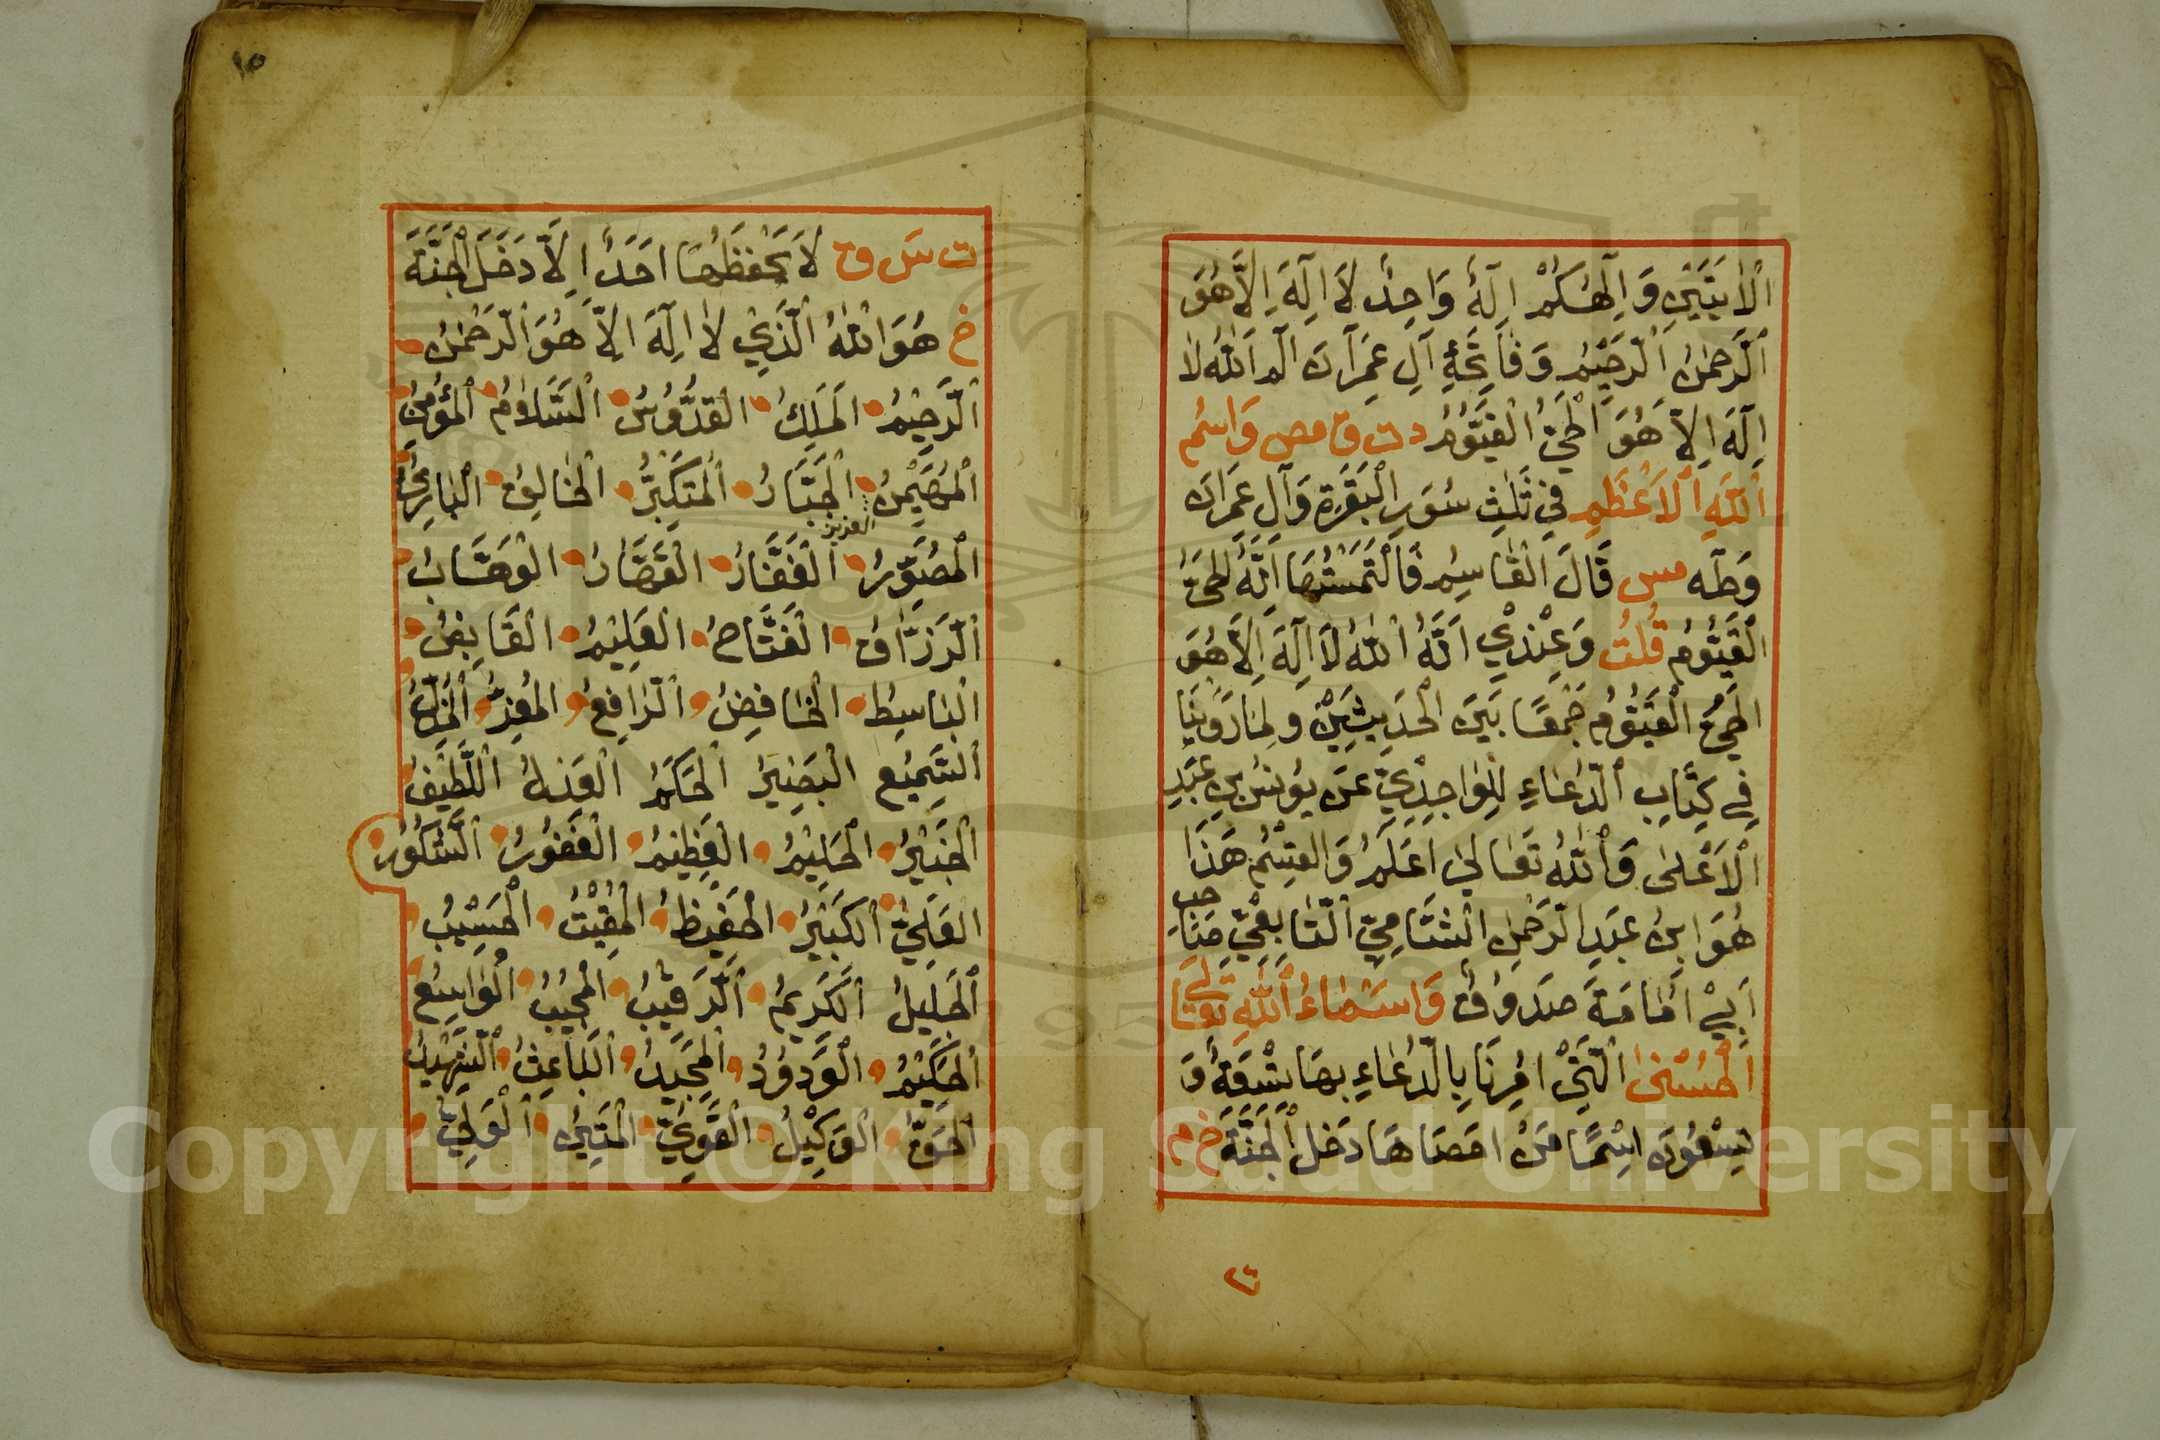 اَلْاٰيَتَيْنِ وَاِلٰهُكُمْ اِلٰهٌ وَاحِدٌ لَا اِلٰهَ اِلَّا هُوَ
اَلرَّحْمٰنُ الرَّحِيْمُ وَفَاتِحَةِ آلِ عِمْرَانَ الٓمٓ اَللّٰهُ لَا
اِلٰهَ اِلَّا هُوَ الْحَيُّ الْقَيُّوْمُ د ت ق مص وَاسْمُ
اللّٰهِ الْاَعْظَمِ فِي ثَلٰثِ سُوَرِ الْبَقَرَةِ وَآلِ عِمْرَانَ
وَطٰهٰ مس قَالَ الْقَاسِمُ فَالْتَمَسْتُهَا اَنَّهُ الْحَيُّ
الْقَيُّوْمُ قُلْتُ وَعِنْدِيْ اَنَّهُ اللّٰهُ لَا اِلٰهَ اِلَّا هُوَ
الْحَيُّ الْقَيُّوْمُ جَمْعًا بَيْنَ الْحَدِيْثَيْنِ وَلِمَا رَوَيْنَا
فِي كِتَابِ الدُّعَاءِ لِلْوَاحِدِيِّ عَنْ يُوْنُسَ بْنِ عَبْدِ
الْاَعْلٰى وَاللّٰهُ تَعَالٰى اَعْلَمُ وَالْقٰسِمُ هٰذَا
هُوَ ابْنُ عَبْدِ الرَّحْمٰنِ الشَّامِيِّ التَّابِعِيِّ صَاحِب
اَبِيْ اُمَامَةَ صَدُوْقٌ وَاَسْمَاءُ اللّٰهِ تَعَالٰى
الْحُسْنٰى الَّتِيْ اُمِرْنَا بِالدُّعَاءِ بِهَا تِسْعَةٌ وَ
تِسْعُوْنَ اِسْمًا مَنْ اَحْصَاهَا دَخَلَ الْجَنَّةَ خ م
ت س ق لَا يَحْفَظُهَا اَحَدٌ اِلَّا دَخَلَ الْجَنَّةَ
خ هُوَ اللّٰهُ الَّذِيْ لَا اِلٰهَ اِلَّا هُوَ الرَّحْمٰنُ
الرَّحِيْمُ الْمَلِكُ الْقُدُّوْسُ السَّلَامُ الْمُؤْمِنُ
الْمُهَيْمِنُ العزيز الْجَبَّارُ الْمُتَكَبِّرُ الْخَالِقُ الْبَارِئُ
الْمُصَوِّرُ الْغَفَّارُ الْقَهَّارُ الْوَهَّابُ
الرَّزَّاقُ الْفَتَّاحُ الْعَلِيْمُ الْقَابِضُ
الْبَاسِطُ الْخَافِضُ الرَّافِعُ الْمُعِزُّ الْمُذِلُّ
السَّمِيْعُ الْبَصِيْرُ الْحَكَمُ الْعَدْلُ اللَّطِيْفُ
الْخَبِيْرُ الْحَلِيْمُ الْعَظِيْمُ الْغَفُوْرُ الشَّكُوْرُ
الْعَلِيُّ الْكَبِيْرُ الْحَفِيْظُ الْمُقِيْتُ الْحَسِيْبُ
الْجَلِيْلُ الْكَرِيْمُ الرَّقِيْبُ الْمُجِيْبُ الْوَاسِعُ
الْحَكِيْمُ الْوَدُوْدُ الْمَجِيْدُ الْبَاعِثُ الشَّهِيْدُ
الْحَقُّ الْوَكِيْلُ الْقَوِيُّ الْمَتِيْنُ الْوَلِيُّ
١٥
Copyright © King Saud University